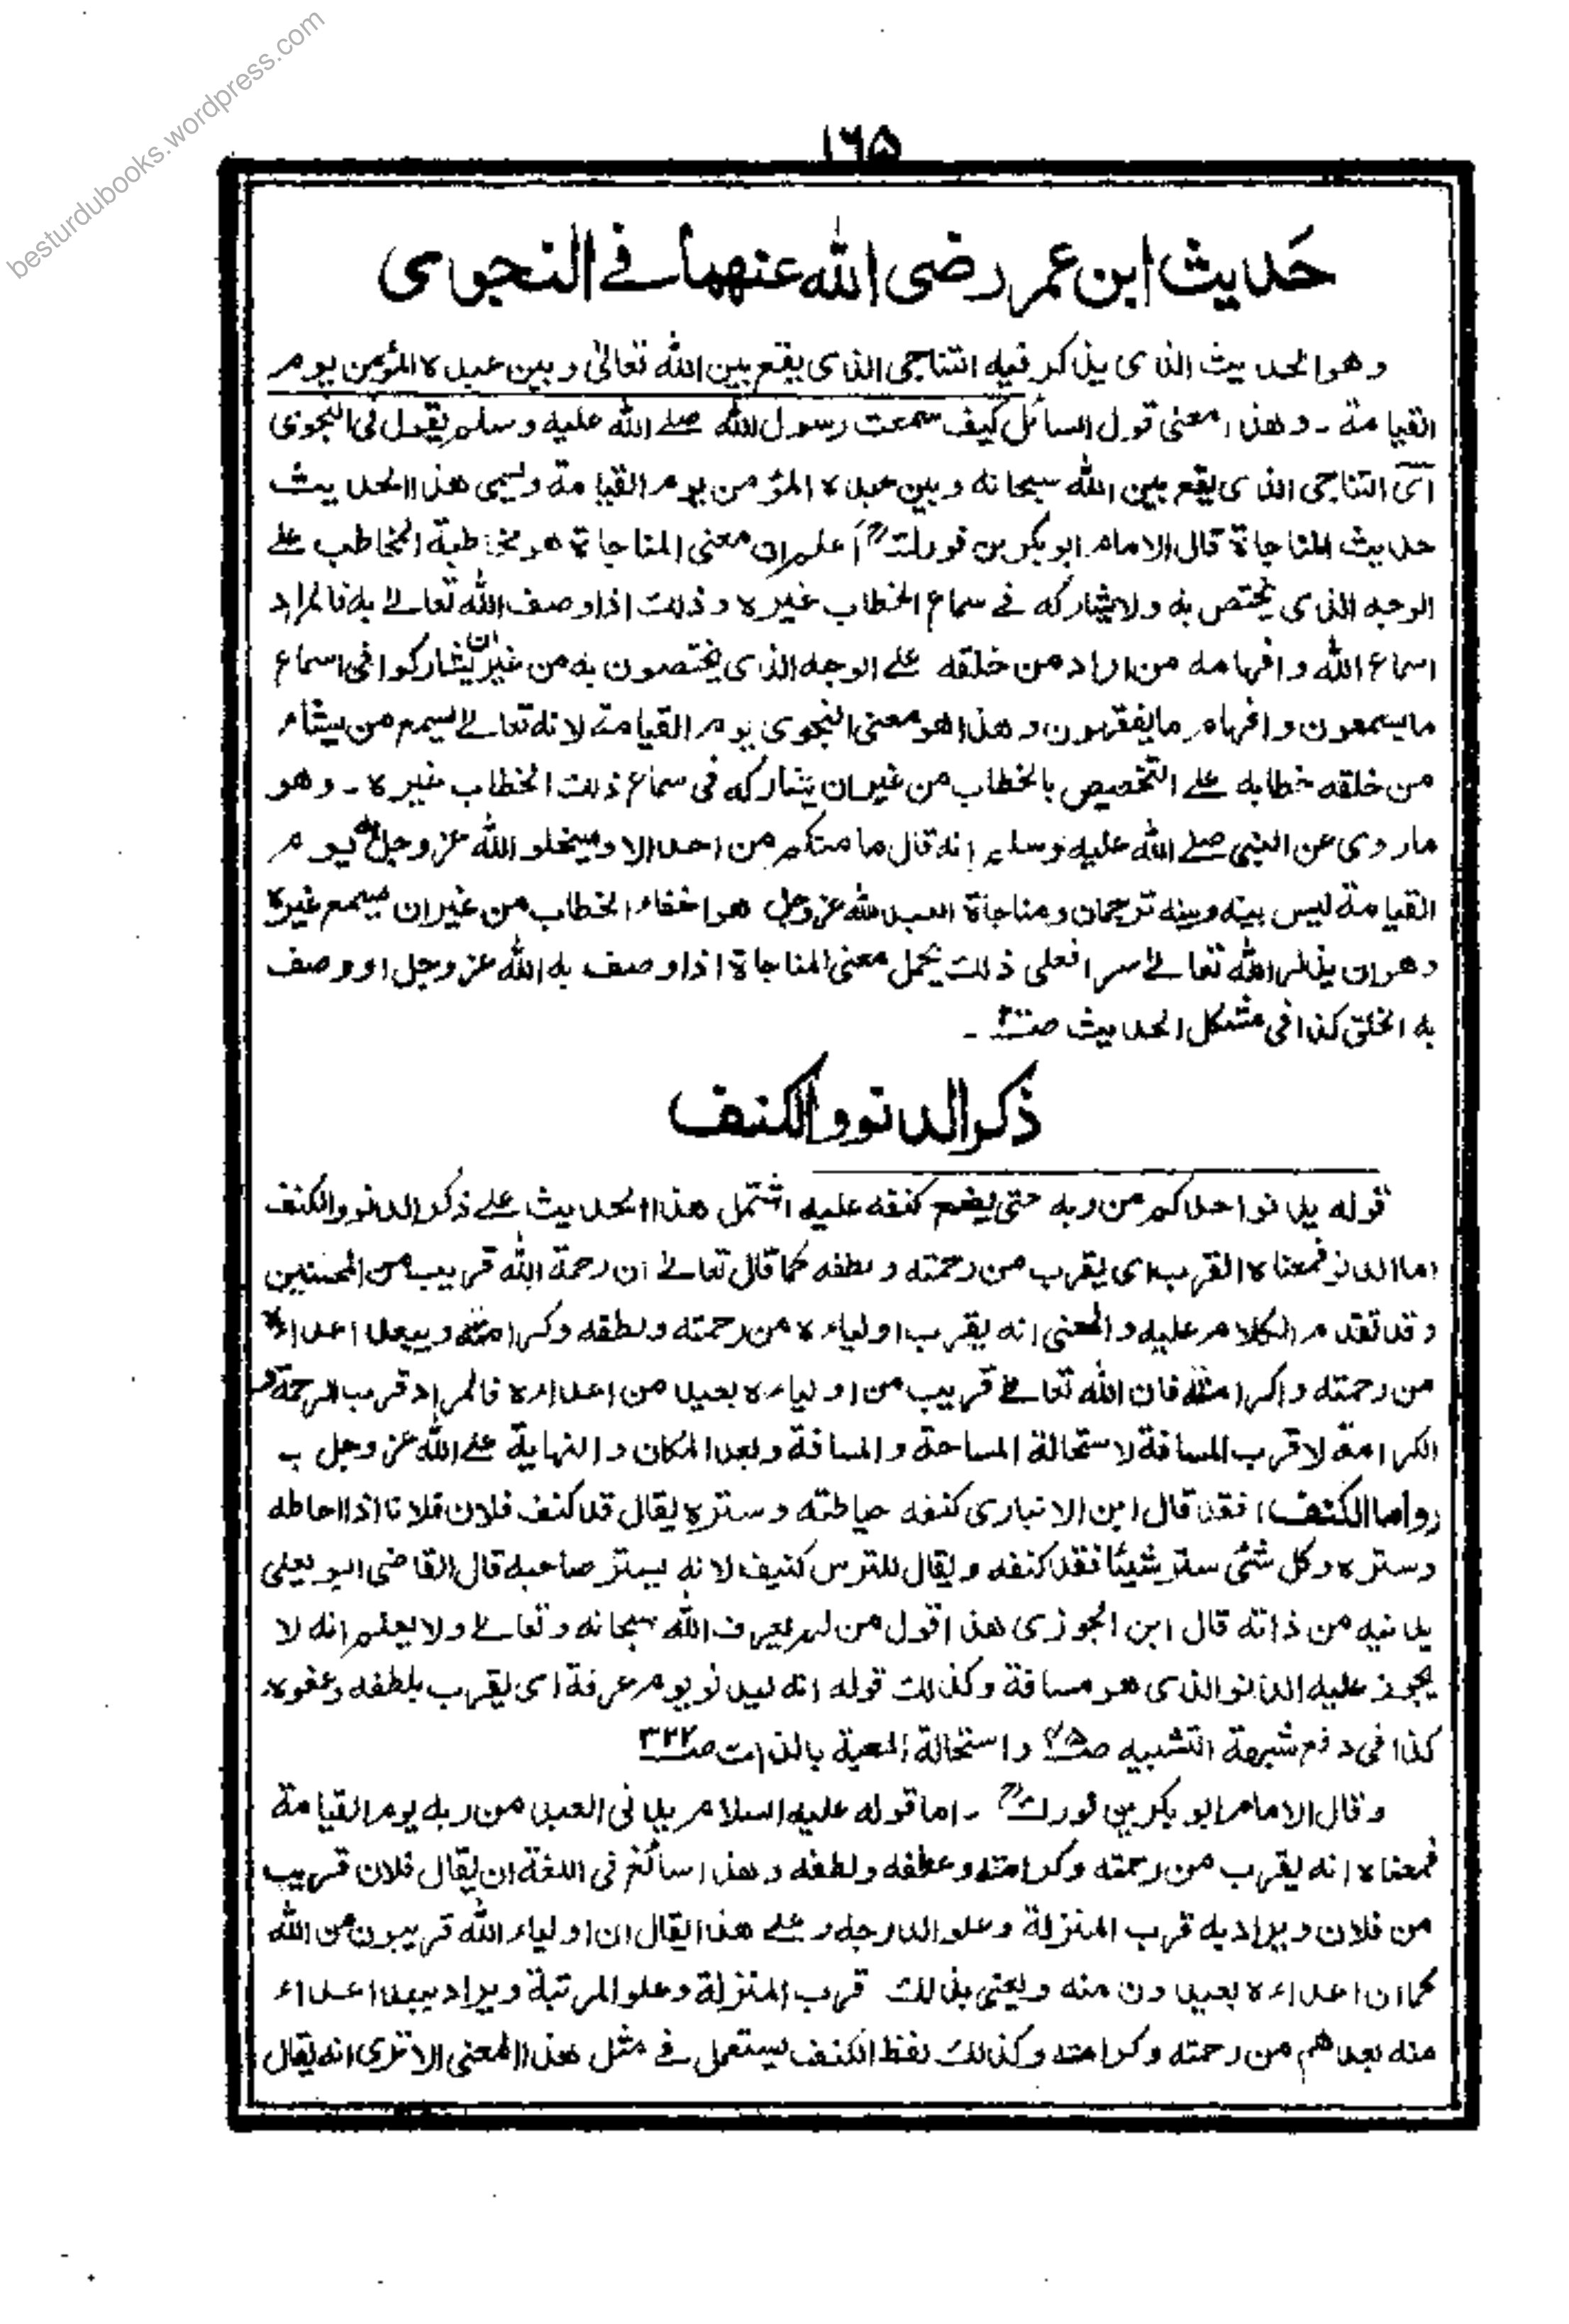 besturdubooks.wordpress.com
۱۶۵
حَديث ابن عمر رضى الله عنهما فے النجوى
وهو الحديث الذى يذكر فيه التناجى الذى يقع بين الله تعالى وبين عبده المؤمن يوم
القيامة ۔ وهذا معنى قول السائل كيف سمعت رسول الله صلے الله عليه وسلم يقول فى النجوى
اى التناجى الذى يقع بين الله سبحانه وبين عبده المؤمن يوم القيامة وليسى هذا الحديث
حديث المناجاة قال الامام ابو بكر بن فورك ؒ اعلم ان معنى المناجاة هو مخاطبة المخاطب علے
الوجه الذى يختص به ولا يشاركه فے سماع الخطاب غيره وذلك اذا وصف الله تعالے به فالمراد
اسماع الله وافهامه من اراد من خلقه علے الوجه الذى يختصون به من غير ان يشاركوا فى اسماع
ما يسمعون وافهام ما يفقهون وهذا هو معنى النجوى يوم القيامة لانه تعالے يسمع من يشاء
من خلقه خطابه علے التخصيص بالخطاب من غير ان يشاركه فى سماع ذلك الخطاب غيره ۔ وهو
ما روى عن النبى صلے الله عليه وسلم انه قال ما منكم من احد الا وسيخلو الله عز وجل به يوم
القيامة ليس بينه وبينه ترجمان ومناجاة العبد لله عز وجل هو اخفاء الخطاب من غير ان يسمع غيره
وهو ان يذكر الله تعالے سرا فعلى ذلك يحمل معنى المناجاة اذا وصف به الله عز وجل او وصف
به الخلق كذا فى مشكل الحديث ۔
ذكر الدنو والكنف
قوله يدنو احدكم من ربه حتى يضع كنفه عليه اشتمل هذا الحديث علے ذكر الدنو والكنف
اما الدنو فمعناه القرب اى يقرب من رحمته ولطفه كما قال تعالے ان رحمة الله قريب من المحسنين
وقد تقدم الكلام عليه والمعنى انه يقرب اولياءه من رحمته ولطفه وكرامته ويبعد اعداءه
من رحمته واكرامته فان الله تعالے قريب من اولياءه بعيد من اعداءه فالمراد قرب الرحمة و
الكرامة لا قرب المسافة لاستحالة المساحة والمسافة وبعد المكان والنهاية علے الله عز وجل ب
(واما الكنف) فقد قال ابن الانبارى كنفه حياطته وستره يقال قد كنف فلان فلانا اذا احاطه
وستره وكل شئ ستر شيئا فقد كنفه ويقال للترس كنيف لانه يستر صاحبه قال القاضى ابو يعلى
يدنيه من ذاته قال ابن الجوزى هذا قول من لم يعرف الله سبحانه وتعالے ولا يعلم انه لا
يجوز عليه الدنو الذى هو مسافة وكذلك قوله انه ليدنو يوم عرفة اى يقرب بلطفه وعفوه
كذا فى دفع شبهة التشبيه واستحالة المعية بالذات ص۳۲۲
وقال الامام ابو بكر بن فورك ؒ ۔ اما قوله عليه السلام يدنى العبد من ربه يوم القيامة
فمعناه انه يقرب من رحمته وكرامته وعطفه ولطفه وهذا سائغ فى اللغة ان يقال فلان قريب
من فلان ويراد به قرب المنزلة وعلو الدرجه وعلے هذا يقال ان اولياء الله قريبون من الله
كما ان اعداءه بعيدون منه ويعنى بذلك قرب المنزلة وعلو المرتبة ويراد ببعد اعداء
منه بعدهم من رحمته وكرامته وكذلك لفظ الكنف يستعمل فے مثل هذا المعنى الا ترى انه يقال